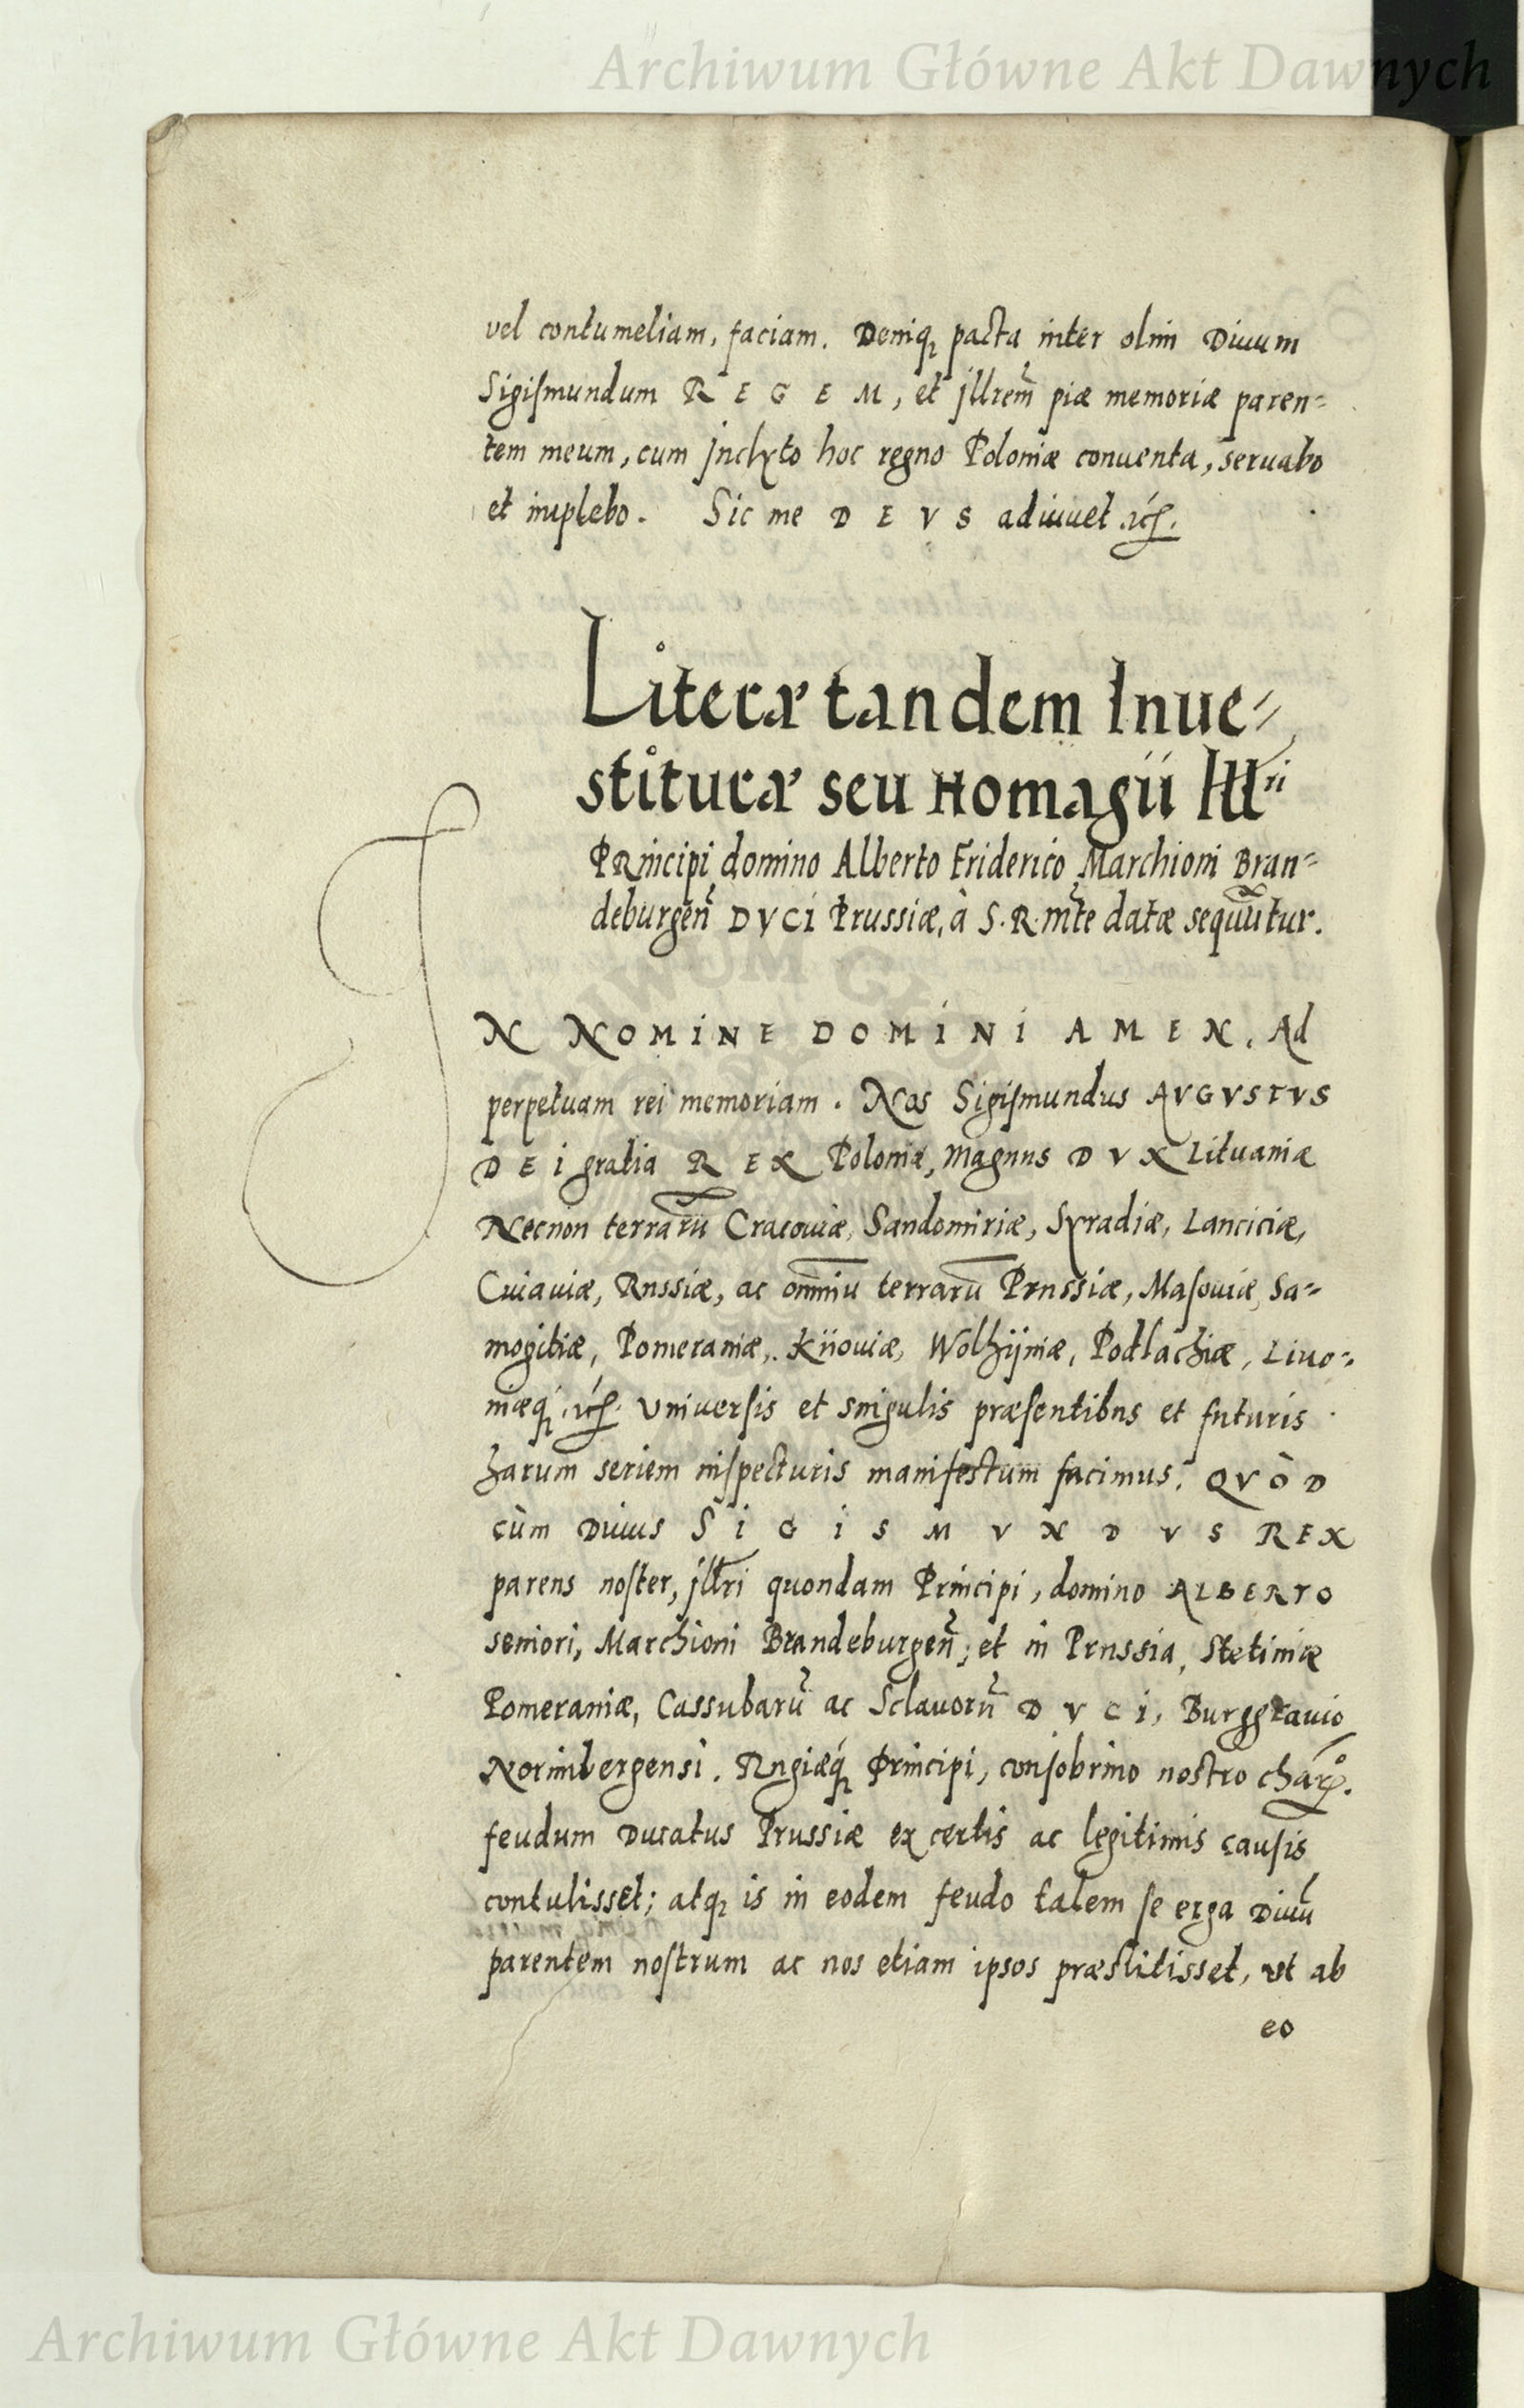 Archiwum Główne Akt Dawnych
vel contumeliam, faciam. Deniq; pacta inter olim Diuum
Sigismundum REGEM, et jllrem̃ piæ memoriæ paren=
tem meum, cum jnclyto hoc regno Poloniæ conuenta, seruabo
et implebo. Sic me DEVS adiuuet etc.
Literæ tandem Inue=
stituræ seu Homagii Illri
PRincipi domino Alberto Friderico Marchioni Bran=
deburgeñ DVCI Prussiæ, à S. R. mte datæ sequūtur.
IN NOMINE DOMINI AMEN. Ad
perpetuam rei memoriam. Nos Sigismundus AVGVSTVS
DEI gratia REX Poloniæ, Magnus DVX Lituaniæ
Necnon terrarū Cracouiæ, Sandomiriæ, Syradiæ, Lanciciæ,
Cuiauiæ, Russiæ, ac omniū terrarū Prussiæ, Masouiæ, Sa=
mogitiæ, Pomeraniæ, Kiiouiæ, Wolhijniæ, Podlachiæ, Liuo=
niæq; etc. Vniuersis et singulis præsentibus et futuris
harum seriem inspecturis manifestum facimus. QVÒD
cùm Diuus SIGISMVNDVS REX
parens noster, jllri quondam Principi, domino ALBERTO
seniori, Marchioni Brandeburgeñ, et in Prussia, Stetiniæ
Pomeraniæ, Cassubarũ ac Sclauorũ DVCI, Burggrauio
Norimbergensi, Rugiæq; Principi, consobrino nostro charo.
feudum Ducatus Prussiæ ex certis ac legitimis causis
contulisset; atq; is in eodem feudo talem se erga Diuū
parentem nostrum ac nos etiam ipsos præstitisset, vt ab
eo
Archiwum Główne Akt Dawnych